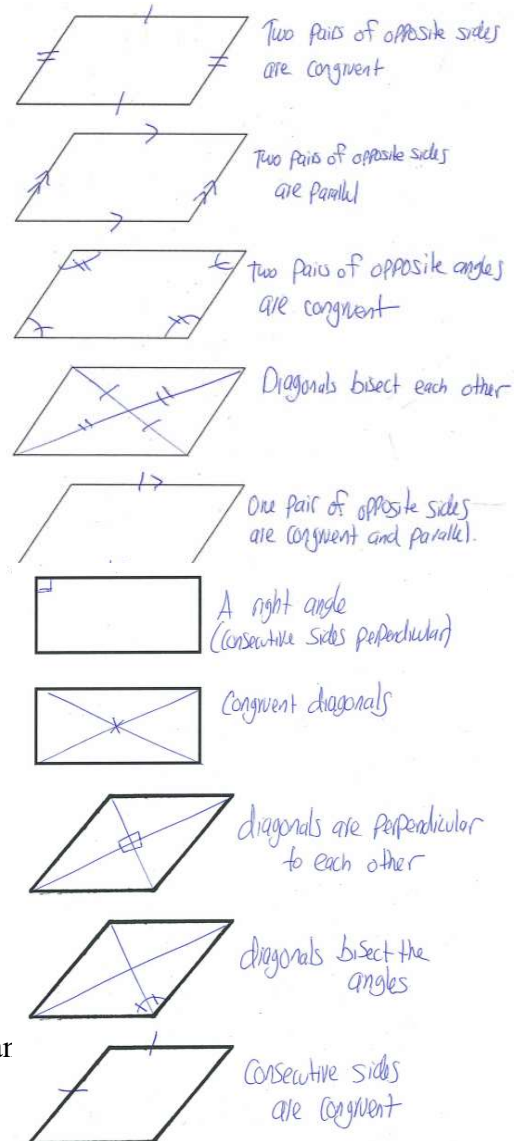 Two pairs of opposite sides
are congruent
Two pairs of opposite sides
are parallel
Two pairs of opposite angles
are congruent
Diagonals bisect each other
One pair of opposite sides
are congruent and parallel.
A right angle
(consecutive sides perpendicular)
Congruent diagonals
diagonals are perpendicular
to each other
diagonals bisect the
angles
ar
Consecutive sides
are congruent